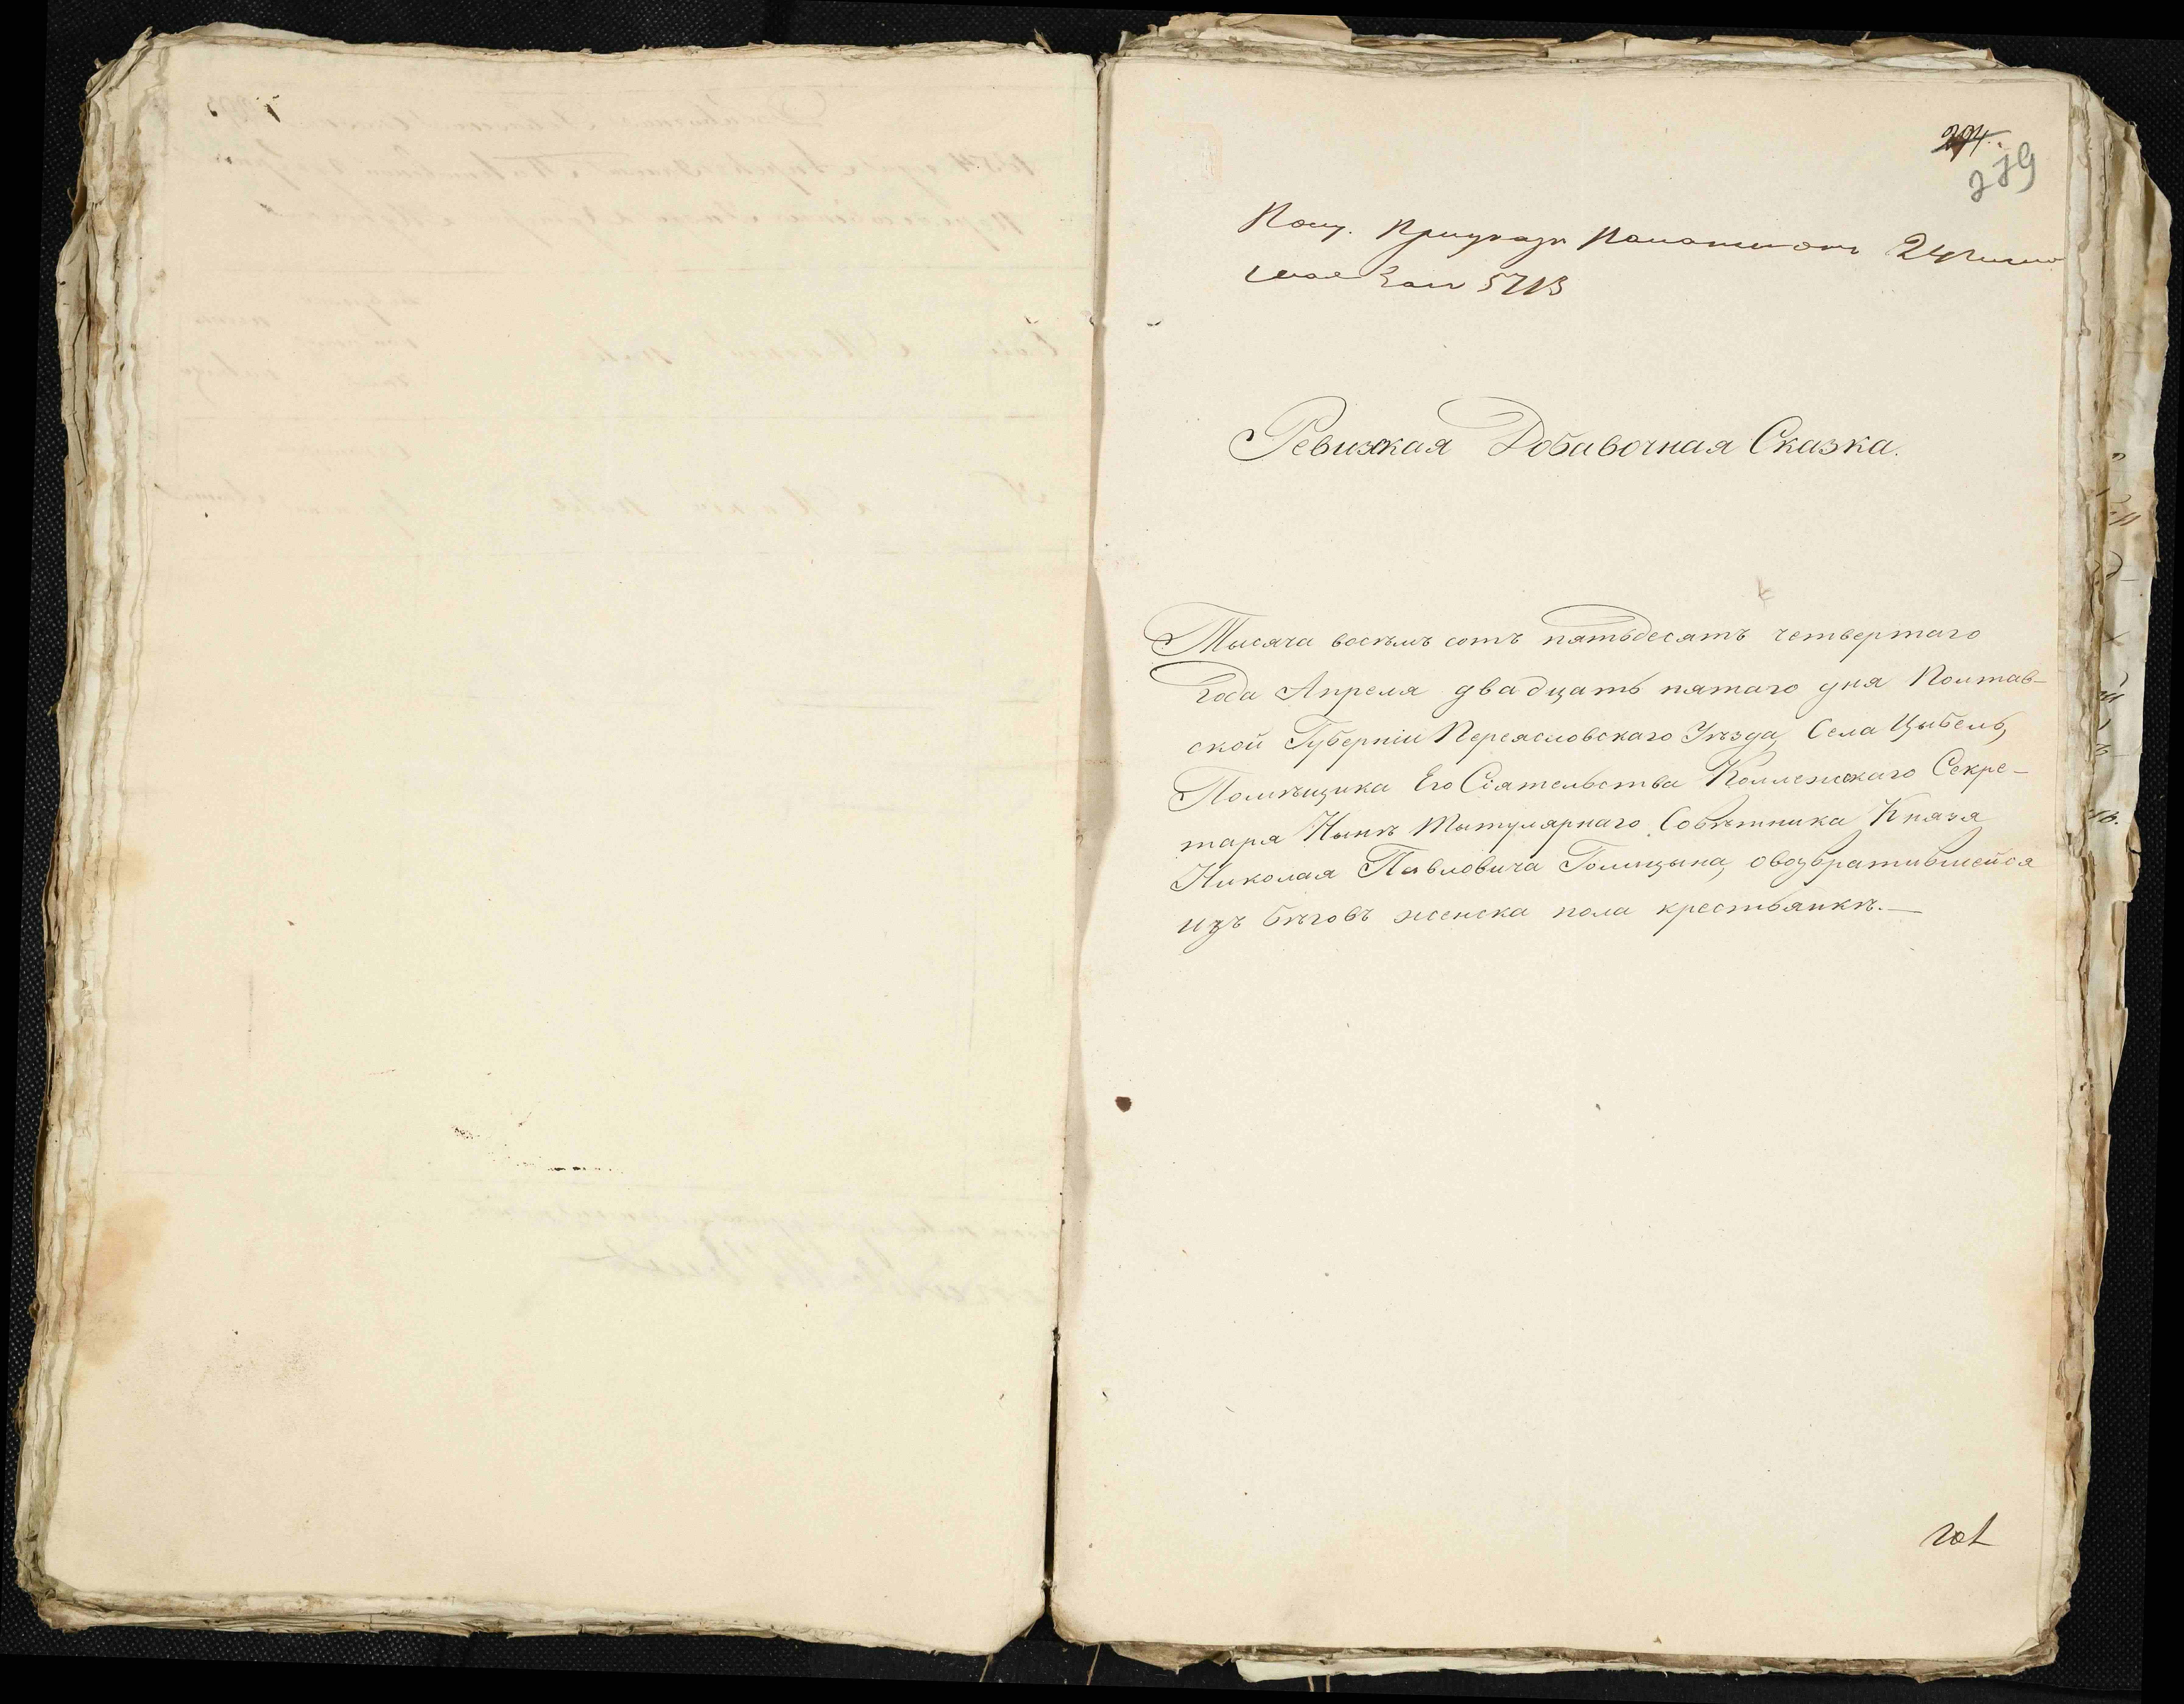 294.
279
Пол. при указѣ Палаты отъ 24 Іюня
за № 5713
Ревизская Добавочная Сказка.
Тысяча восѣмъ сотъ пятьдесятъ четвертаго
Года Апреля двадцать пятаго дня Полтав-
ской Губерніи Переясловскаго Уѣзда, Села Цыбель,
Помѣщика Его Сіятельства Коллежскаго Секре-
таря Нынѣ Тытулярнаго Совѣтника Князя
Николая Павловича Голицына, овозвратившейся
изъ бѣговъ женска пола крестьянкѣ.—